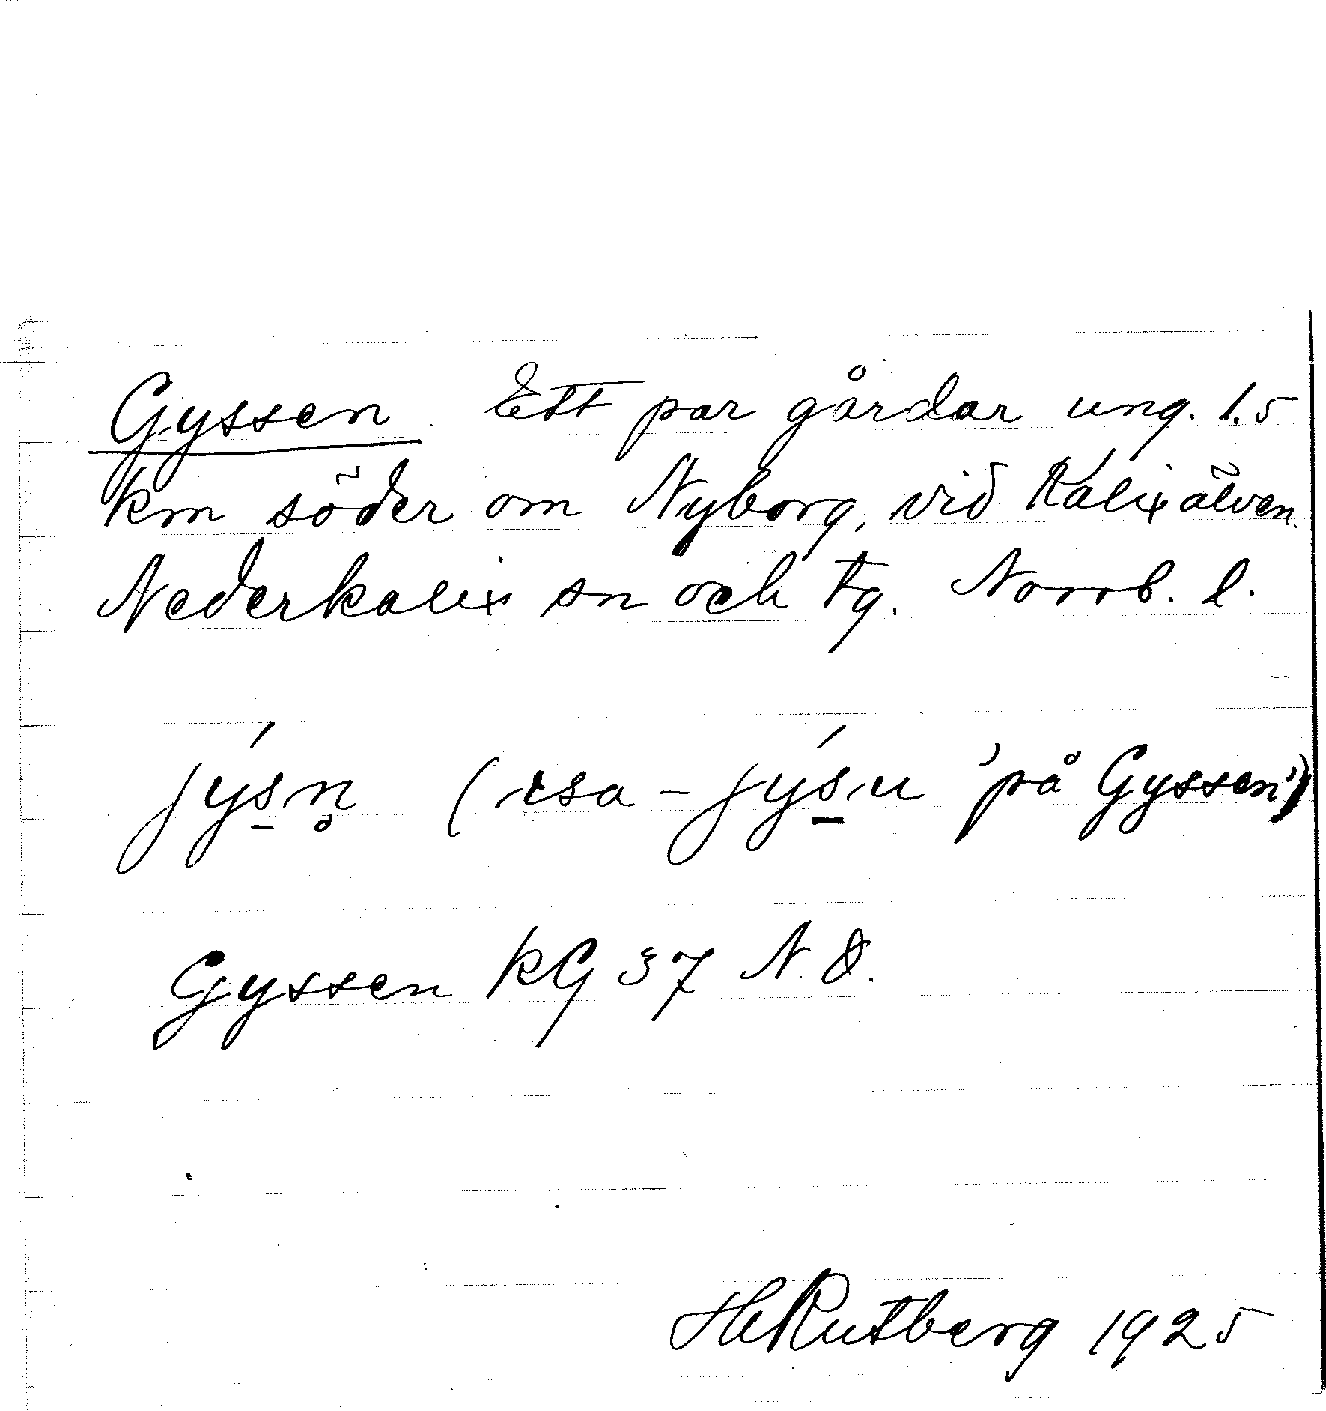 Gyssen. Ett par gårdar ung. 1.5
km söder om Nyborg, vid Kalixälven.
Nederkalix sn och tg. Norrb. l.
jýs̠n̥ (isa - jýs̠u 'på Gyssen')
Gyssen KG 37 N. 8.
HRutberg 1925